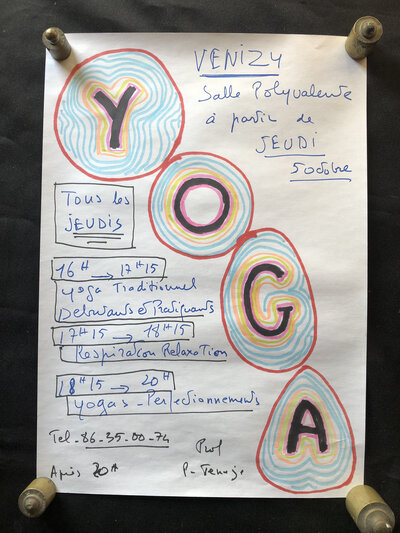 YOGA
VENIZY
Salle Polyvalente
à partir de
JEUDI
5 octobre
Tous les
JEUDIS
16H → 17H15
Yoga Traditionnel
Débutants et Pratiquants
17H15 → 18H15
Respiration Relaxation
18H15 → 20H
Yogas - Perfectionnements
Tel - 86-35-00-74
Après 20H
Prof
P.